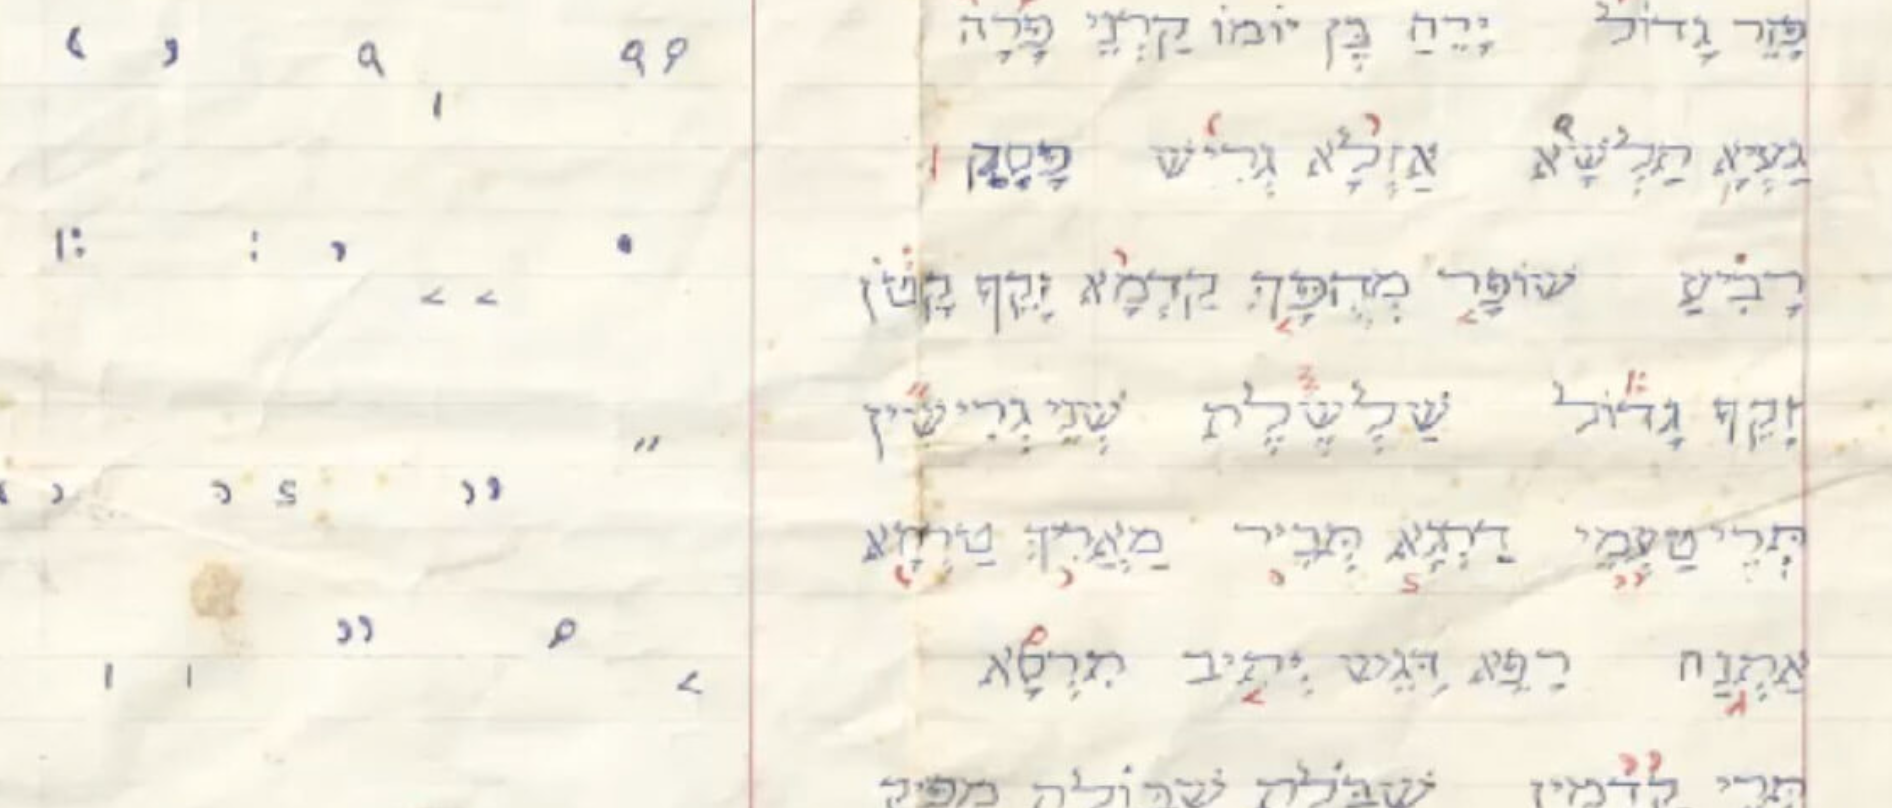 פָּזֵר גָּדוֹל יָרֵחַ בֶּן יוֹמוֹ קַרְנֵי פָרָה
גַּעְיָא תַּלְשָׁא אַזְלָא גְּרִישׁ פָּסֵק
רָבִיעַ שׁוֹפָר מְהֻפָּךְ קַדְמָא זָקֵף קָטֹן
זָקֵף גָּדוֹל שַׁלְשֶׁלֶת שְׁנֵי גְרִישִׁין
תְּרֵי טַעֲמֵי דַּרְגָּא תְּבִיר מַאֲרִיךְ טַרְחָא
אַתְנַח רָפֵא דָּגֵישׁ יְתִיב תִּרְסָא
תְּרֵי קַדְמִין שִׁבֹּלֶת שְׁרוּלָה מפיק